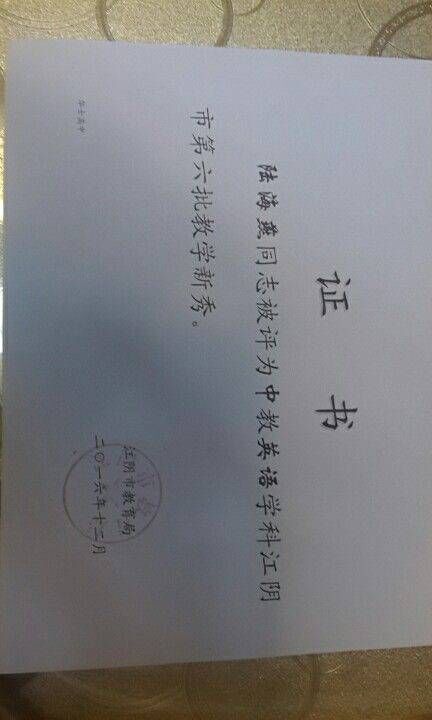 证书
陆海燕同志被评为中教英语学科江阴
市第六批教学新秀。
江阴市教育局
二〇一六年十二月
华士高中